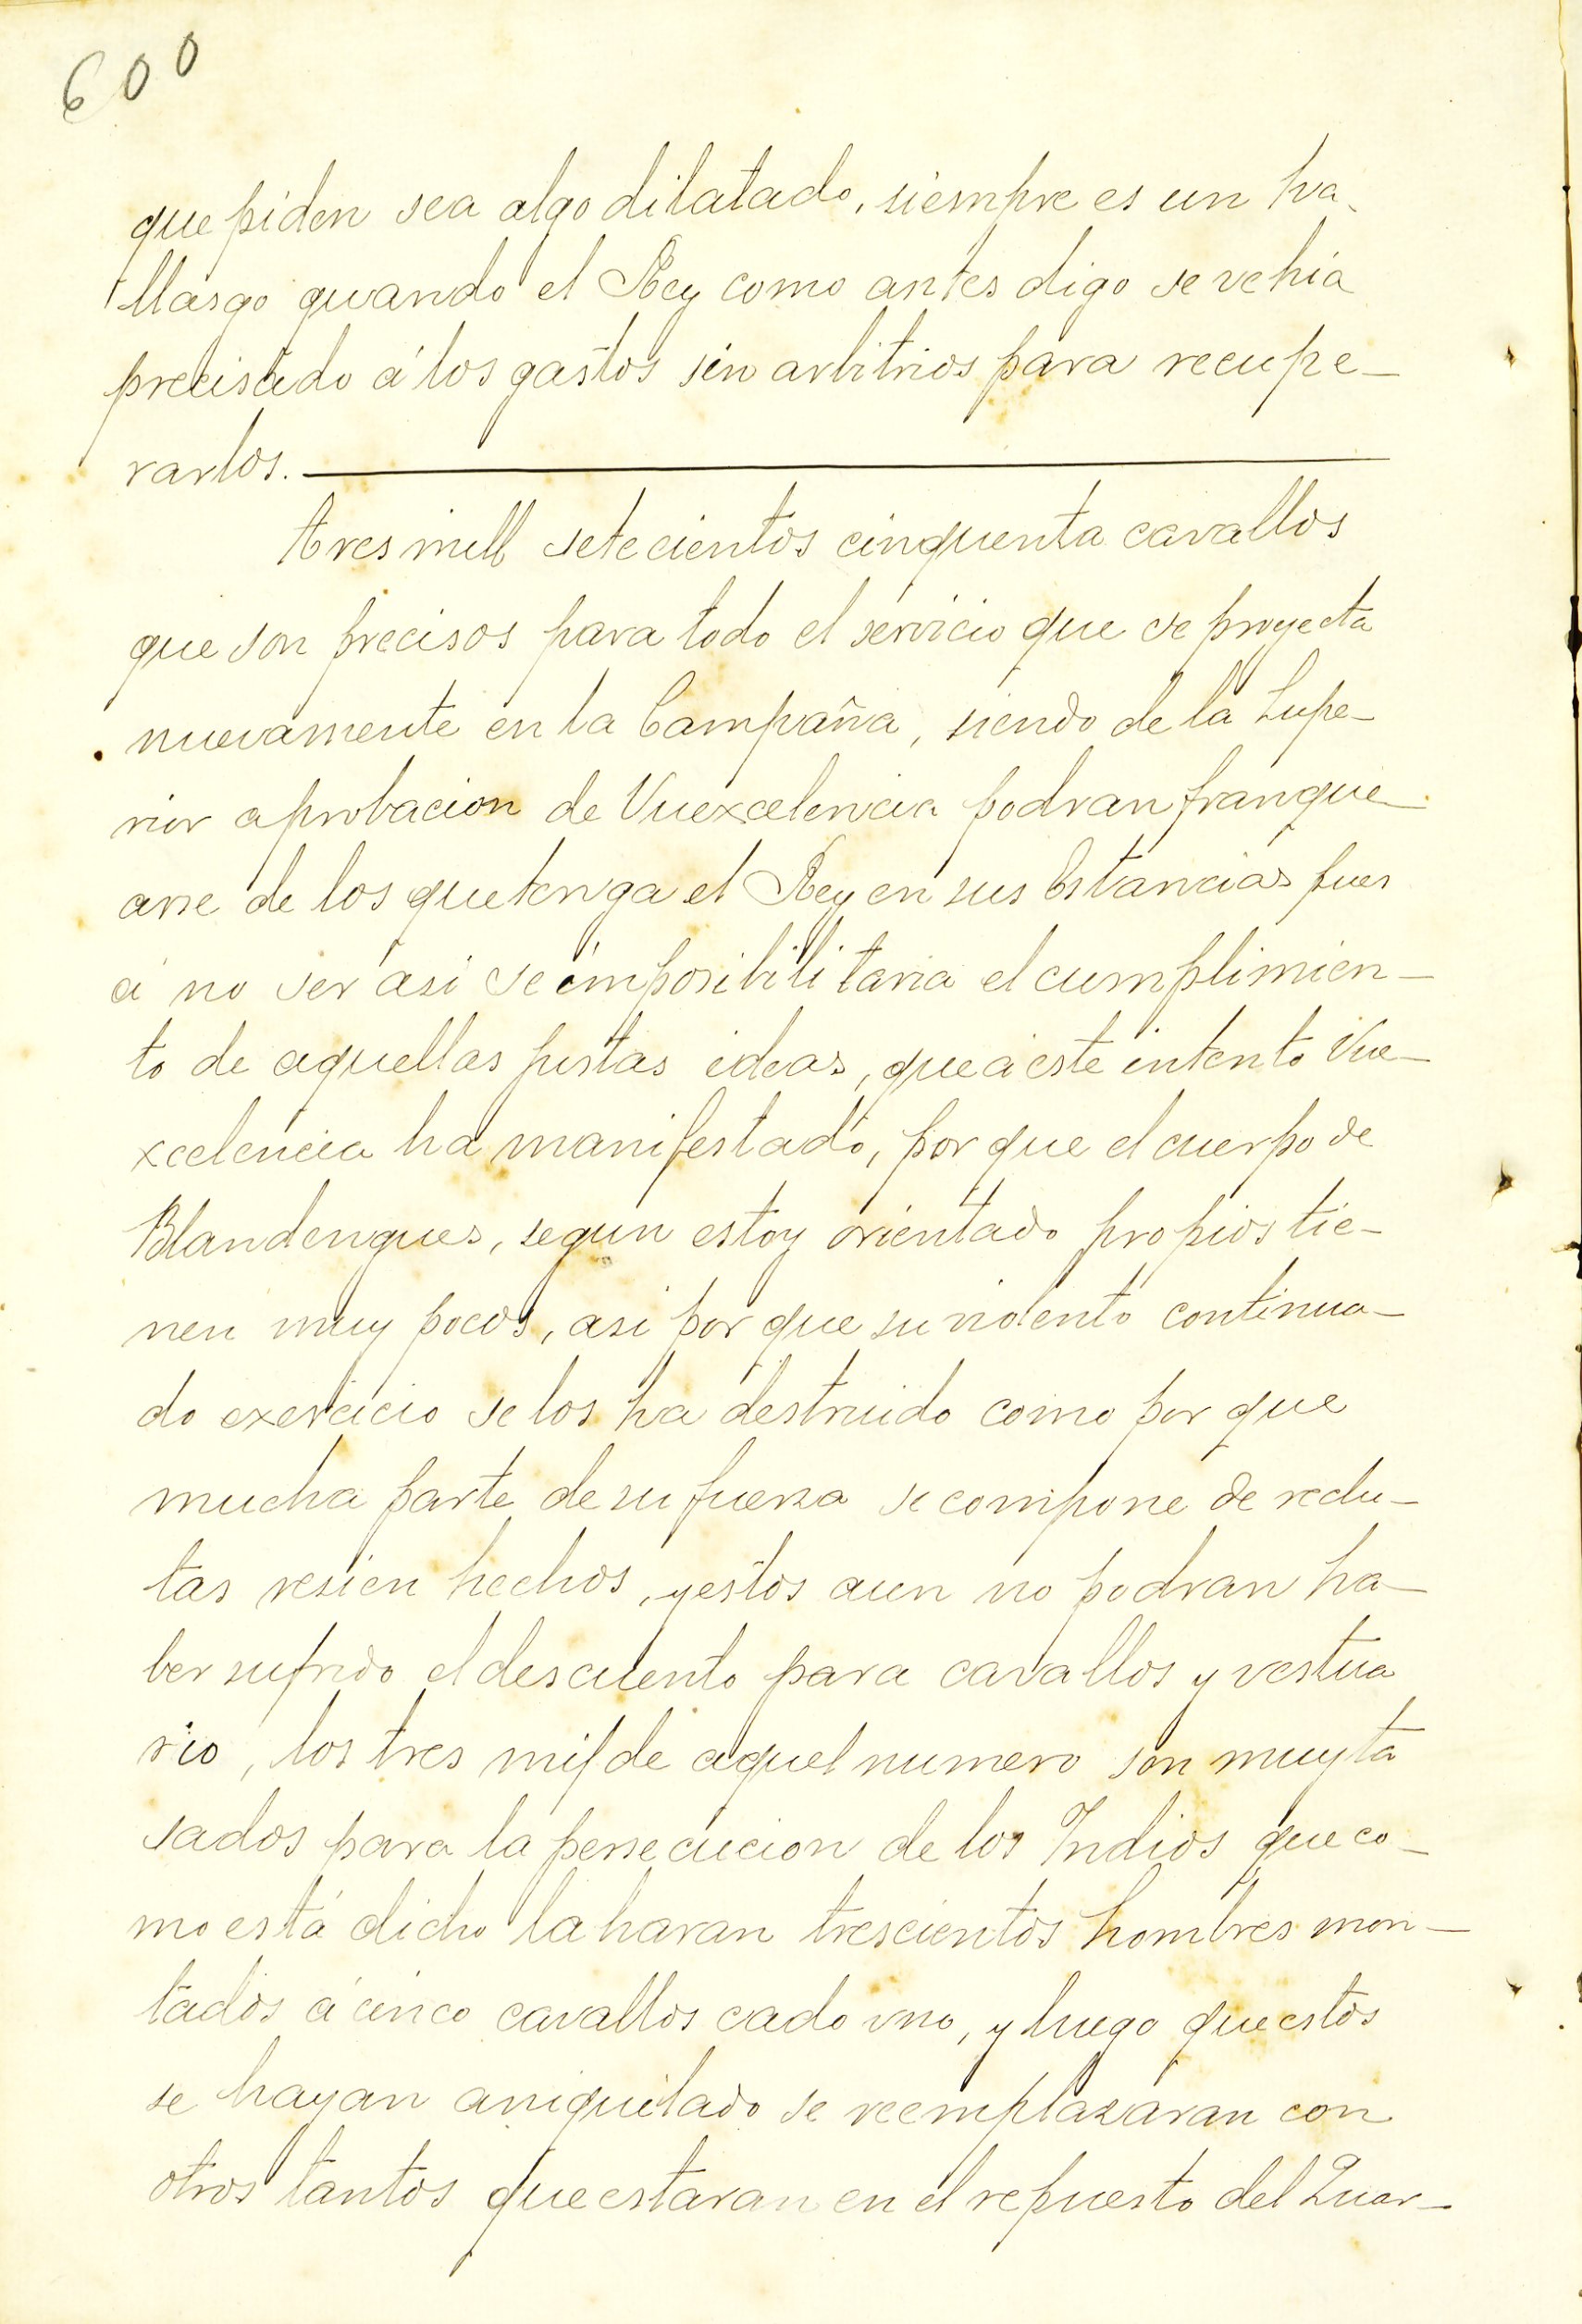 600
que piden sea algo dilatado, siempre es un ha-
llasgo quando el Rey como antes digo se vehia
precisado á los gastos sin arbitrios para recupe-
rarlos.
tres mill setecientos cinquenta cavallos
que son precisos para todo el servicio que se proyecta
nuevamente en la Campaña, siendo de la Supe-
rior aprobacion de Vuexcelencia podran franque-
arse de los que tenga el Rey en sus Estancias pues
á no ser asi se imposibilitaria el cumplimien-
to de aquellas justas ideas, que á este intento Vue-
xcelencia ha manifestado, por que el cuerpo de
Blandengues, segun estoy orientado propios tie-
nen muy pocos, asi por que su violento continua-
do exercicio se los ha destruido como por que
mucha parte de su fuerza se compone de reclu-
tas resien hechos, y estos aun no podran ha-
ber sufrido el descuento para cavallos y vestua
rio, los tres mil de aquel numero son muy ta
sados para la persecucion de los Indios que co-
mo está dicho la haran trescientos hombres mon-
tados á cinco cavallos cado uno, y luego que estos
se hayan aniquilado se reemplazaran con
otros tantos que estaran en el repuesto del Quar-